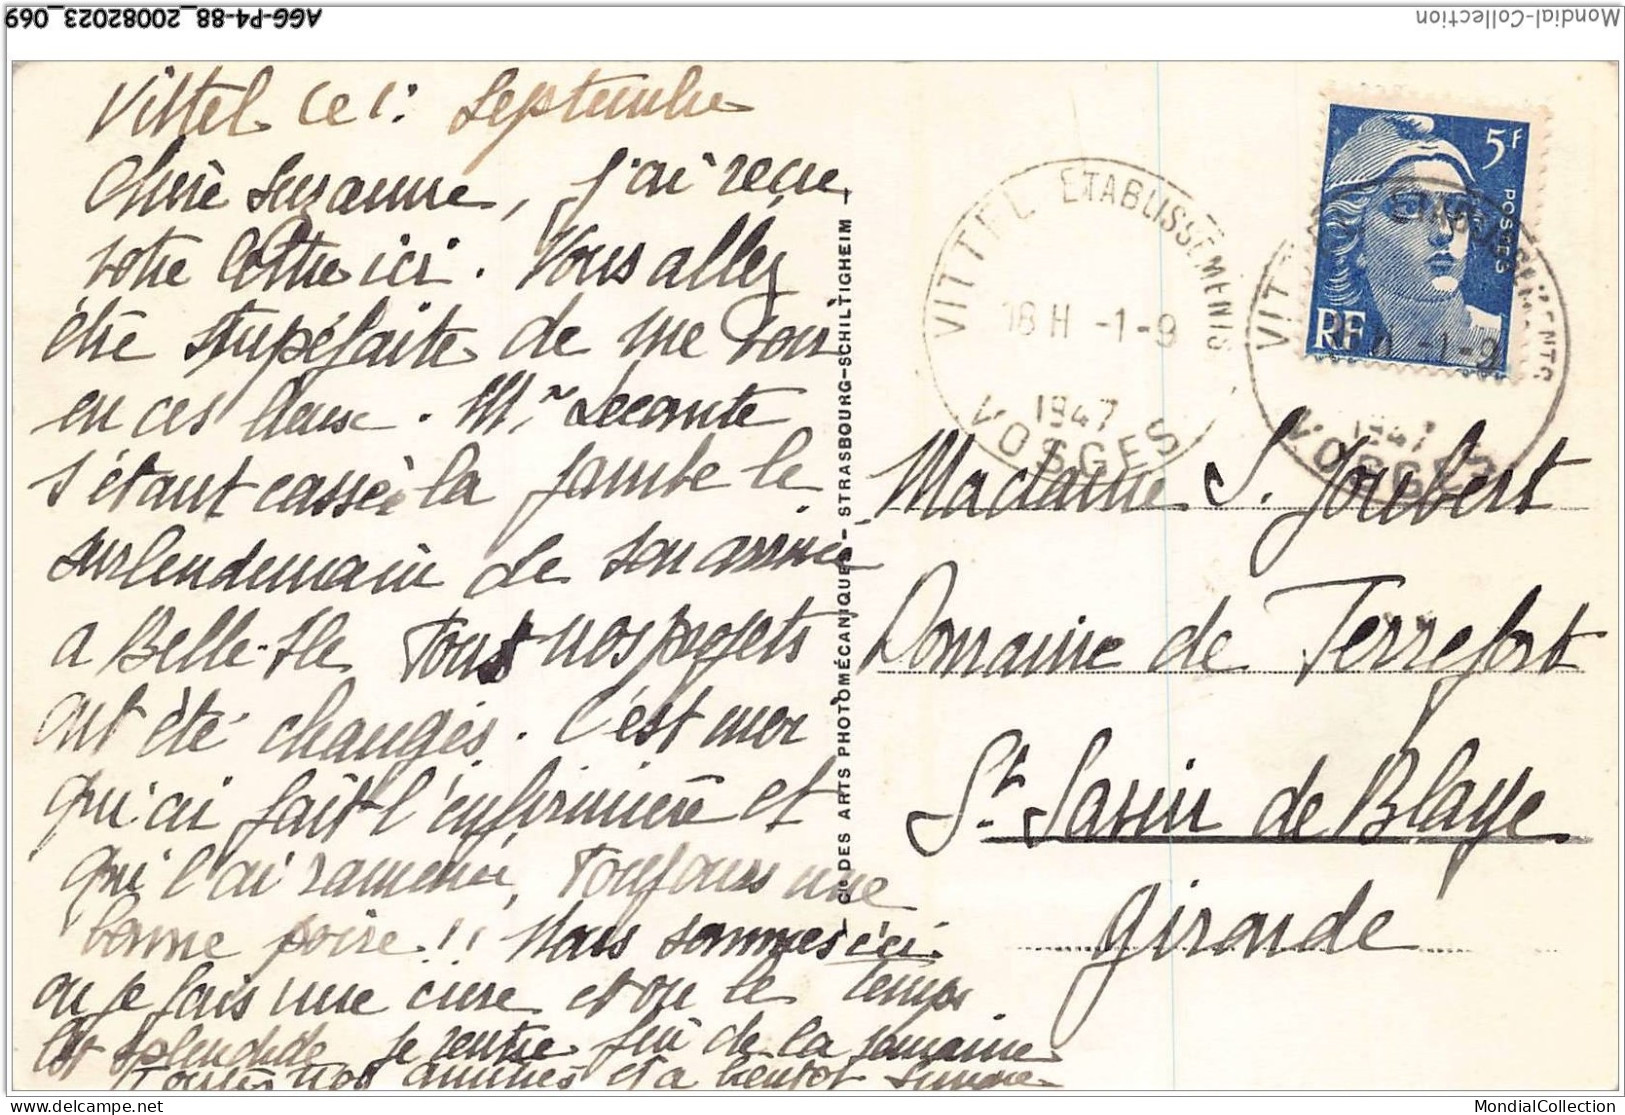 AGG-P4-88_20082023_069
Mondial-Collection
Vittel ce 1: Septembre
Chère Suzanne, j'ai reçu
votre lettre ici. Vous allez
être stupéfaite de me voir
en ces lieux. Mr Lecomte
s'étant cassé la jambe le
surlendemain de son arrivée
a Belle-Ile Tous nos projets
ont été changés. C'est moi
qui ai fait l'infirmière et
qui l'ai ramené, Toujours une
bonne poire!! Nous sommes ici
ou je fais une cure et ou le temps
est splendide je rentre fin de la semaine
Toutes nos amitiés et a bientot
Cie DES ARTS PHOTOMÉCANIQUES - STRASBOURG-SCHILTIGHEIM -
VITTEL ETABLISSEMENTS
18 H -1-9
1947
VOSGES
5F
POSTES
RF
VITTEL ETABLISSEMENTS
18 H -1-9
1947
VOSGES
Madame S. Joubert
Domaine de Terrefort
St. Savin de Blaye
Gironde
delcampe.net
MondialCollection